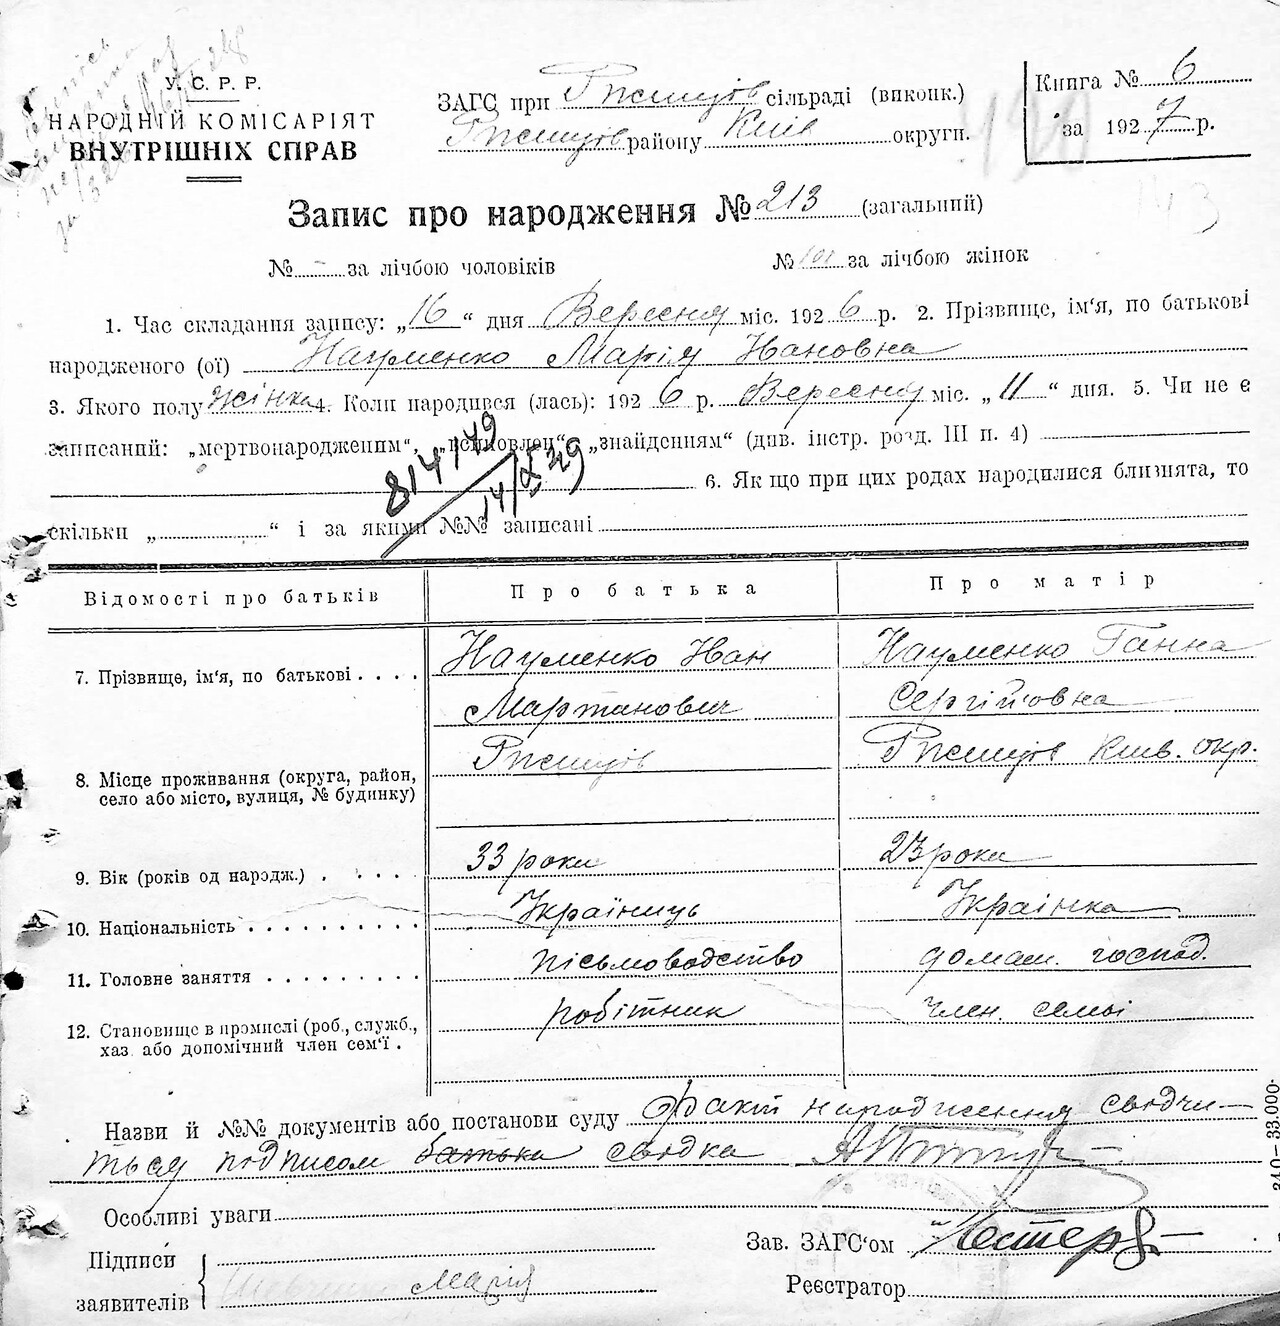 У. С. Р. Р.
НАРОДНІЙ КОМІСАРІЯТ
ВНУТРІШНІХ СПРАВ
ЗАГС при Ржищів сільраді (виконк.)
Ржищів району Київ округи.
Книга № 6
за 1927 р.
Запис про народження № 213 (загальний)
№ - за лічбою чоловіків
№ 101 за лічбою жінок
1. Час складання запису: „16“ дня Вересня міс. 1926 р. 2. Прізвище, ім‘я, по батькові
народженого (ої) Науменко Марія Ивановна
3. Якого полу жінка 4. Коли народився (лась): 1926 р. Вересня міс. „11“ дня. 5. Чи не є
записаний: „мертвонародженим“, „усиновлен“, „знайденям“ (див. інстр. розд. III п. 4)
814/179
14/
6. Як що при цих родах народилися близнята, то
скільки „ “ і за якими №№ записані
Відомості про батьків
Про батька
Про матір
7. Прізвище, ім‘я, по батькові
Науменко Иван
Мартинович
Науменко Ганна
Сергійовна
8. Місце проживання (округа, район,
село або місто, вулиця, № будинку)
Ржищів
Ржищів Київ. окр.
9. Вік (років од народж.)
33 роки
23 роки
10. Національність
Україниць
Украінка
11. Головне заняття
пісьмоводство
домаш. господ.
12. Становище в промислі (роб., служб.,
хаз. або допомічний член сем‘ї
робітник
член. семьі
Назви й №№ документів або постанови суду Факт народження свідчи-
ться подписом батька свідка
Особливі уваги
Підписи
заявителів
Марія
Зав. ЗАГС‘ом
Реєстратор
340—33.000.